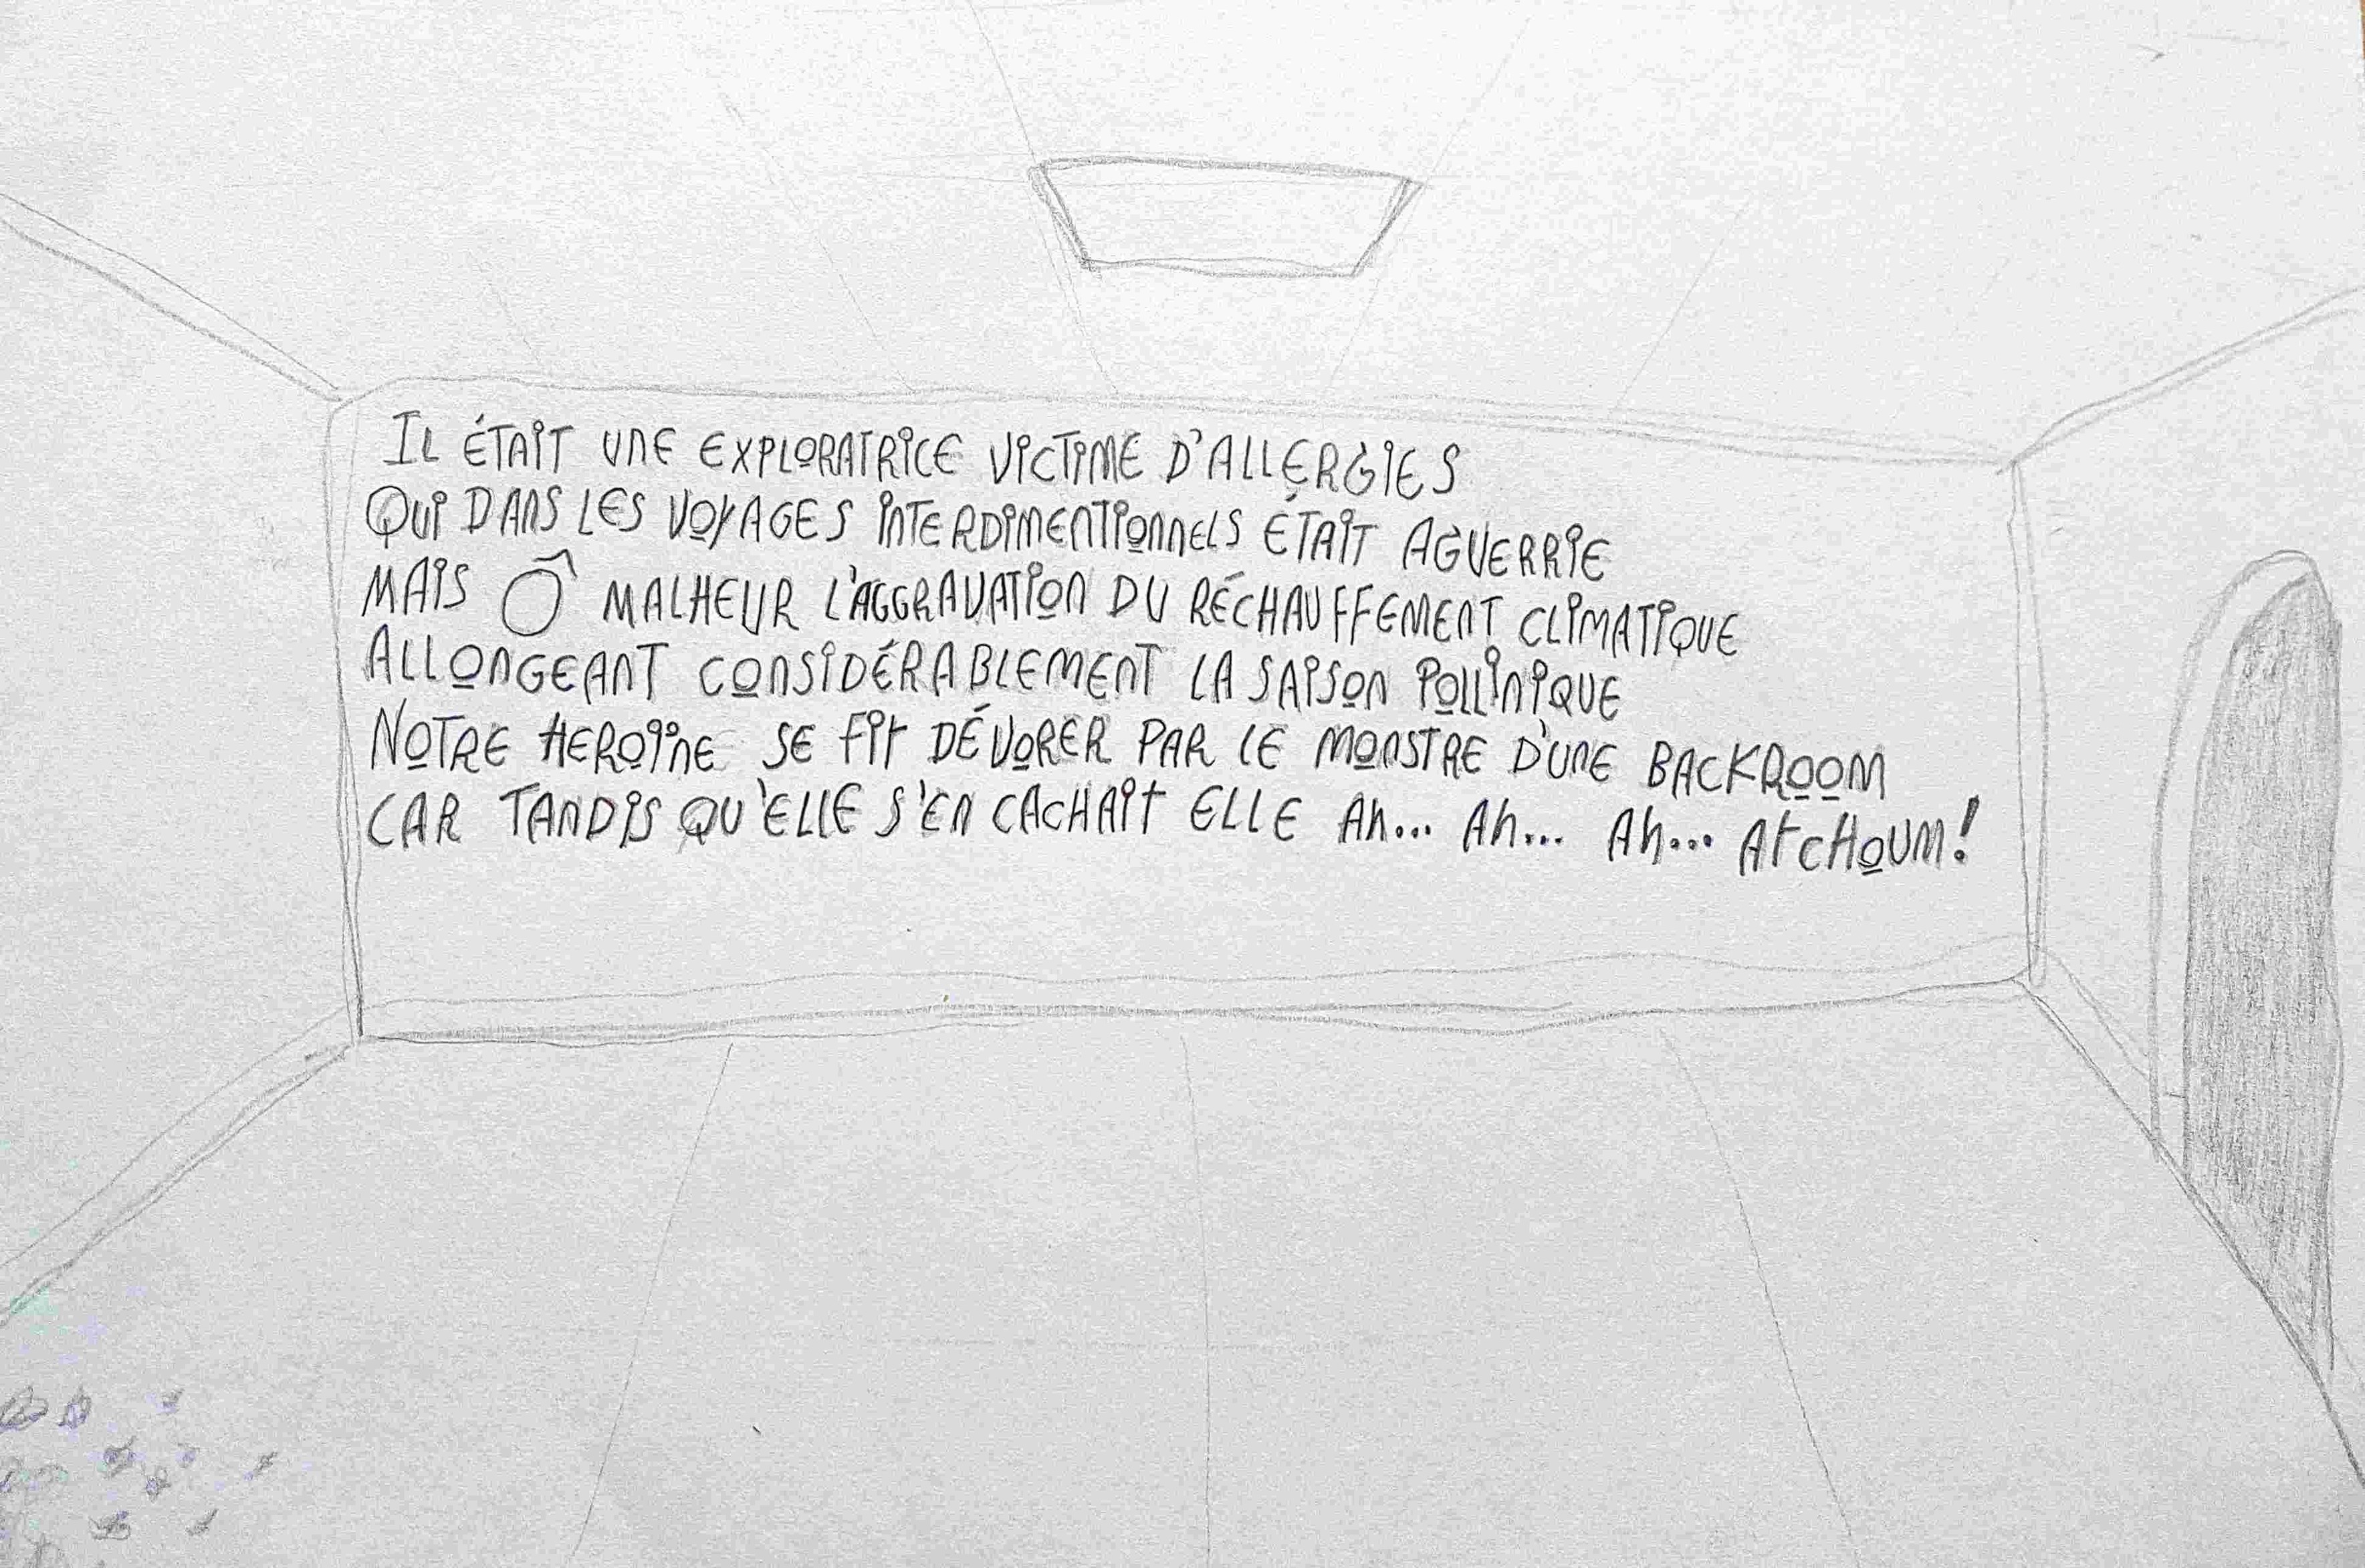 Il était une exploratrice victime d'allergies
Qui dans les voyages interdimentionnels était aguerrie
Mais Ô malheur l'aggravation du réchauffement climatique
Allongeant considérablement la saison pollinique
Notre heroïne se fit dévorer par le monstre d'une backroom
Car tandis qu'elle s'en cachait elle Ah... Ah... Ah... Atchoum!